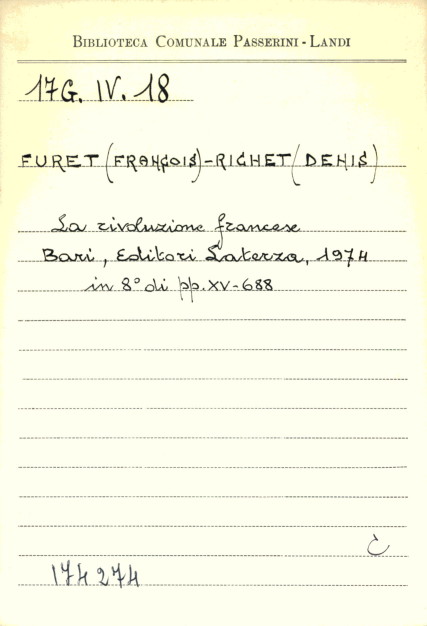 BIBLIOTECA COMUNALE PASSERINI-LANDI
17G. IV. 18
FURET (FRANÇOIS)-RICHET (DENIS)
La rivoluzione francese
Bari, Editori Laterza, 1974
in 8° di pp. XV-688
174274